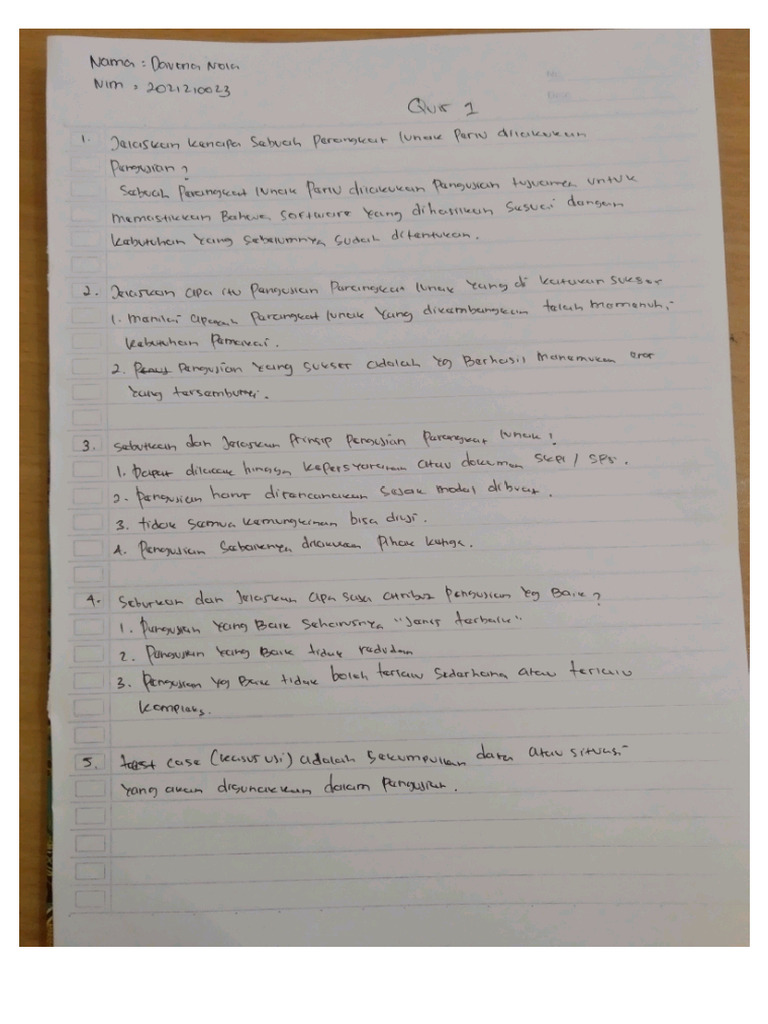 Nama : Davena Nola
Nim : 2021210023
Quis 1
1. Jelaskan kenapa sebuah perangkat lunak perlu dilakukan
pengujian?
Sebuah perangkat lunak perlu dilakukan pengujian tujuannya untuk
memastikkan bahwa software yang dihasilkan sesuai dengan
kebutuhan yang sebelumnya sudah ditentukan.
2. Jelaskan apa itu pengujian perangkat lunak yang di katakan sukses
1. menilai apakah perangkat lunak yang dikembangkan telah memenuhi
kebutuhan pemakai.
2. pengujian yang sukses adalah yg berhasil menemukan eror
yang tersembunyi.
3. Sebutkan dan jelaskan prinsip pengujian perangkat lunak!
1. Dapat dilacak hingga kepersyaratan atau dokumen SKPL / SPS.
2. pengujian harus direncanakan sejak model dibuat.
3. tidak semua kemungkinan bisa diuji.
4. Pengujian sebaiknya dilakukan pihak ketiga.
4. Sebutkan dan jelaskan apa saja atribut pengujian yg baik?
1. pengujian yang baik seharusnya "jenis terbaik"
2. pengujian yang baik tidak redudan
3. pengujian yg baik tidak boleh terlalu sederhana atau terlalu
kompleks.
5. test case (kasus uji) adalah sekumpulan data atau situasi
yang akan digunakkan dalam pengujian.